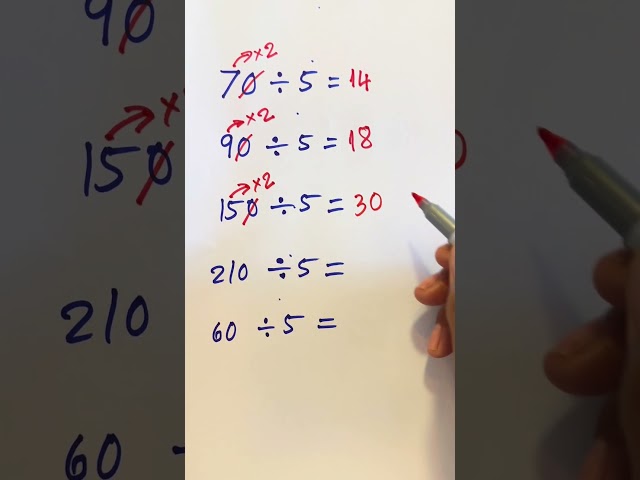 ×2
70 ÷ 5 = 14
×2
90 ÷ 5 = 18
×2
150 ÷ 5 = 30
210 ÷ 5 =
60 ÷ 5 =